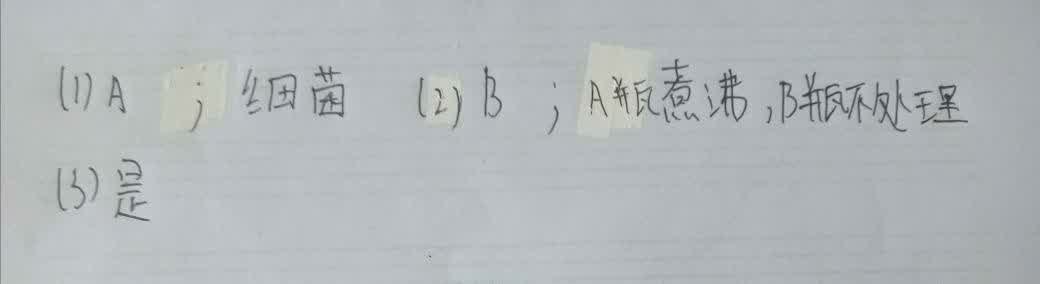 (1) A ; 细菌 (2) B ; A瓶煮沸,B瓶不处理
(3) 是